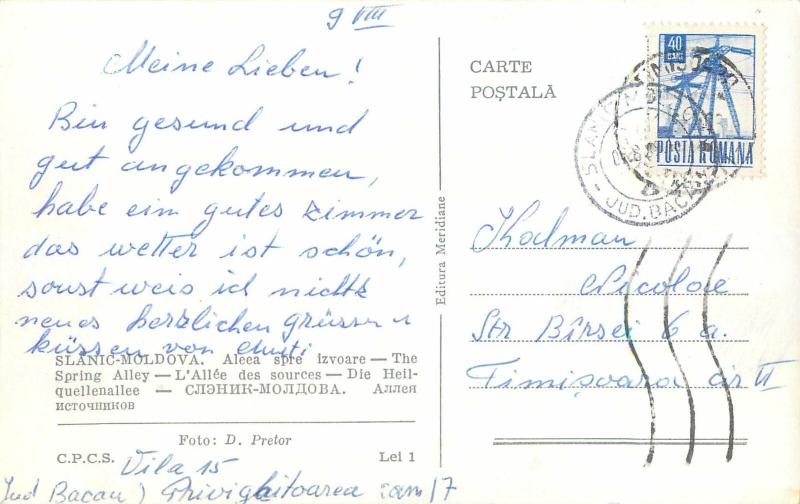 9 VIII
Meine Lieben!
Bin gesund und
gut angekommen,
habe ein gutes zimmer
das wetter ist schön,
sonst weis ich nichts
neues herzlichen grüssen u
küssen von
SLĂNIC-MOLDOVA. Aleea spre izvoare — The
Spring Alley — L'Allée des sources — Die Heil-
quellenallee — СЛЭНИК-МОЛДОВА. Аллея
источников
Foto: D. Pretor
C.P.C.S. Lei 1
Vila 15
Jud Bacau) Privighitoarea cam 17
Editura Meridiane
CARTE
POȘTALĂ
40
BANI
POSTA ROMANA
SLANIC
JUD. BACĂU
Kalman
Nicolae
Str Bîrsei 6 a.
Timișoara cir II